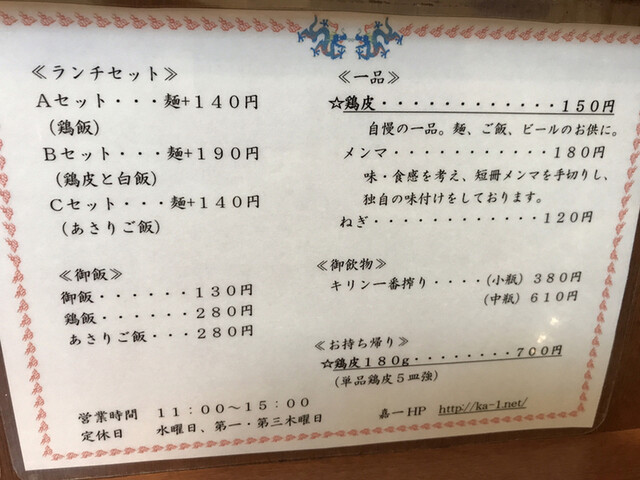 ≪ランチセット≫
Aセット・・・麺+140円
(鶏飯)
Bセット・・・麺+190円
(鶏皮と白飯)
Cセット・・・麺+140円
(あさりご飯)
≪御飯≫
御飯・・・・・・130円
鶏飯・・・・・・280円
あさりご飯・・・280円
≪一品≫
☆鶏皮・・・・・・・・・・・・150円
自慢の一品。麺、ご飯、ビールのお供に。
メンマ・・・・・・・・・・・180円
味・食感を考え、短冊メンマを手切りし、
独自の味付けをしております。
ねぎ・・・・・・・・・・・・120円
≪御飲物≫
キリン一番搾り・・・・(小瓶)380円
(中瓶)610円
≪お持ち帰り≫
☆鶏皮180g・・・・・・・・700円
(単品鶏皮5皿強)
営業時間 11:00~15:00
定休日 水曜日、第一・第三木曜日
嘉一HP http://ka-1.net/